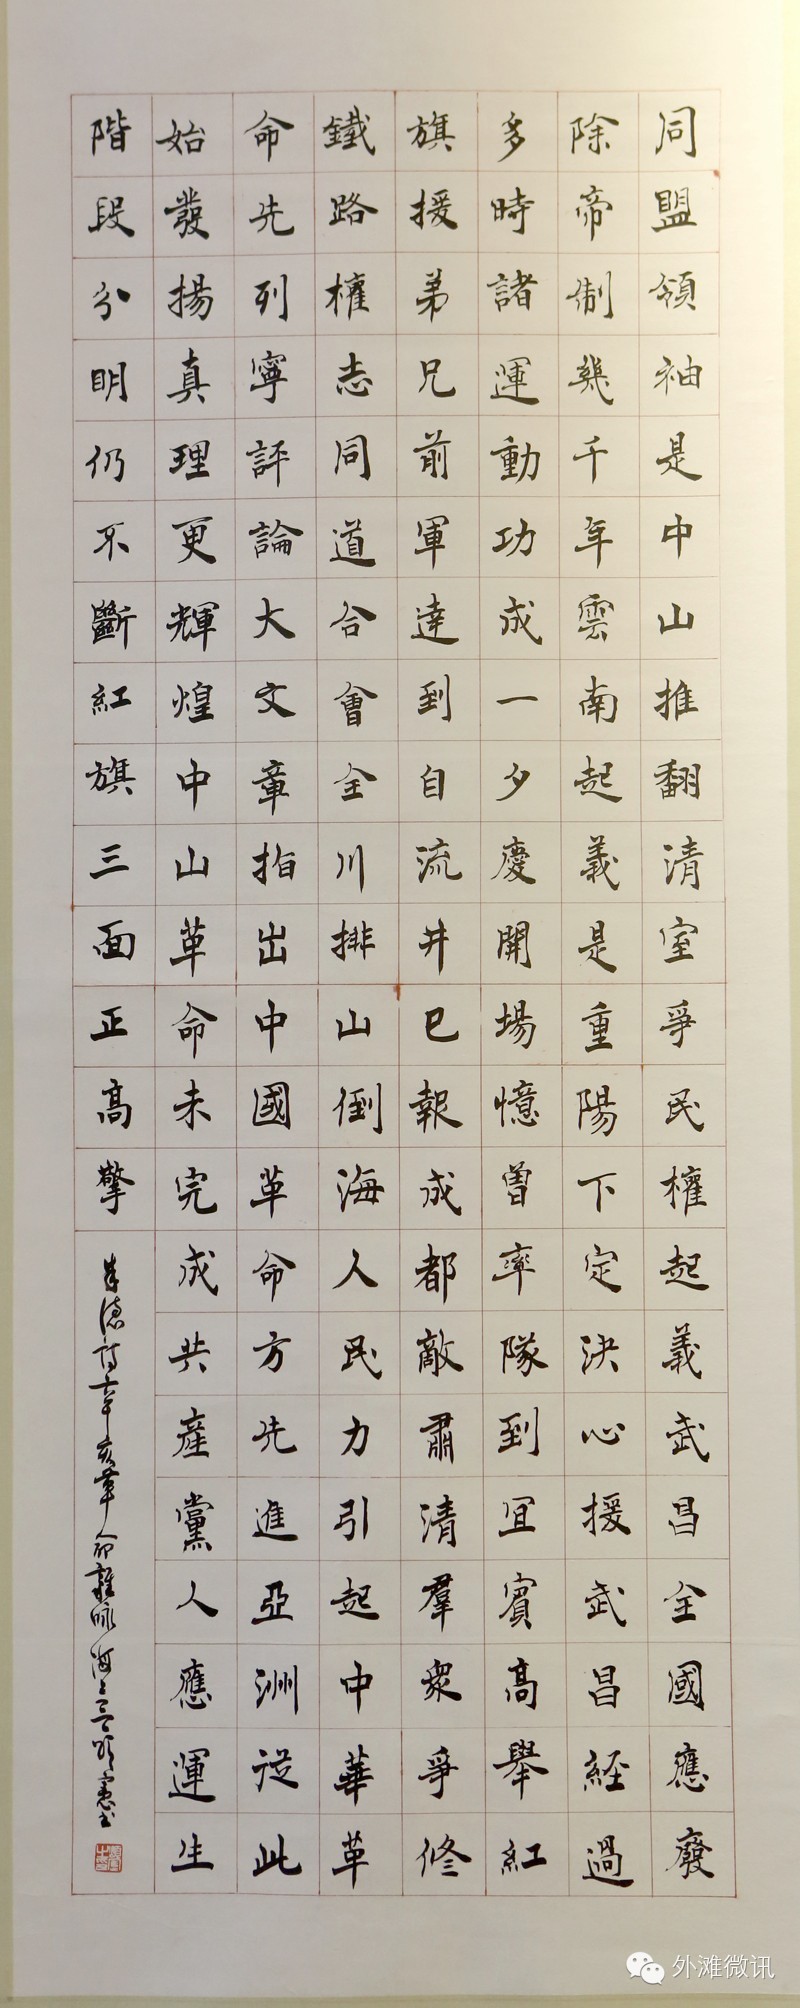 同盟領袖是中山推翻清室爭民權起義武昌全國應廢
除帝制幾千年雲南起義是重陽下定決心援武昌經過
多時諸運動功成一夕慶開場憶曾率隊到宜賓高舉紅
旗援弟兄前軍達到自流井已報成都敵肅清羣衆爭修
鐵路權志同道合會全川排山倒海人民力引起中華革
命先列寧評論大文章指出中國革命方先進亞洲從此
始發揚真理更輝煌中山革命未完成共產黨人應運生
階段分明仍不斷紅旗三面正高擎
朱德詩辛亥革命雜詠
外滩微讯